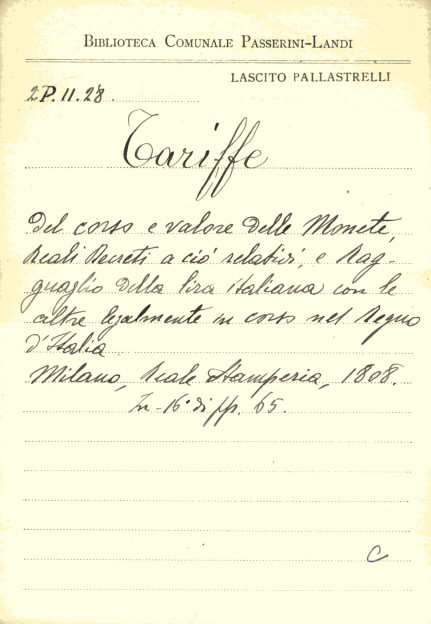 BIBLIOTECA COMUNALE PASSERINI-LANDI
LASCITO PALLASTRELLI
2P.11.28.
Tariffe
Del corso e valore delle Monete,
Reali Decreti a ciò relativi, e Rag-
guaglio della lira italiana con le
altre legalmente in corso nel Regno
d'Italia.
Milano, Reale Stamperia, 1808.
In-16° di pp. 65.
C